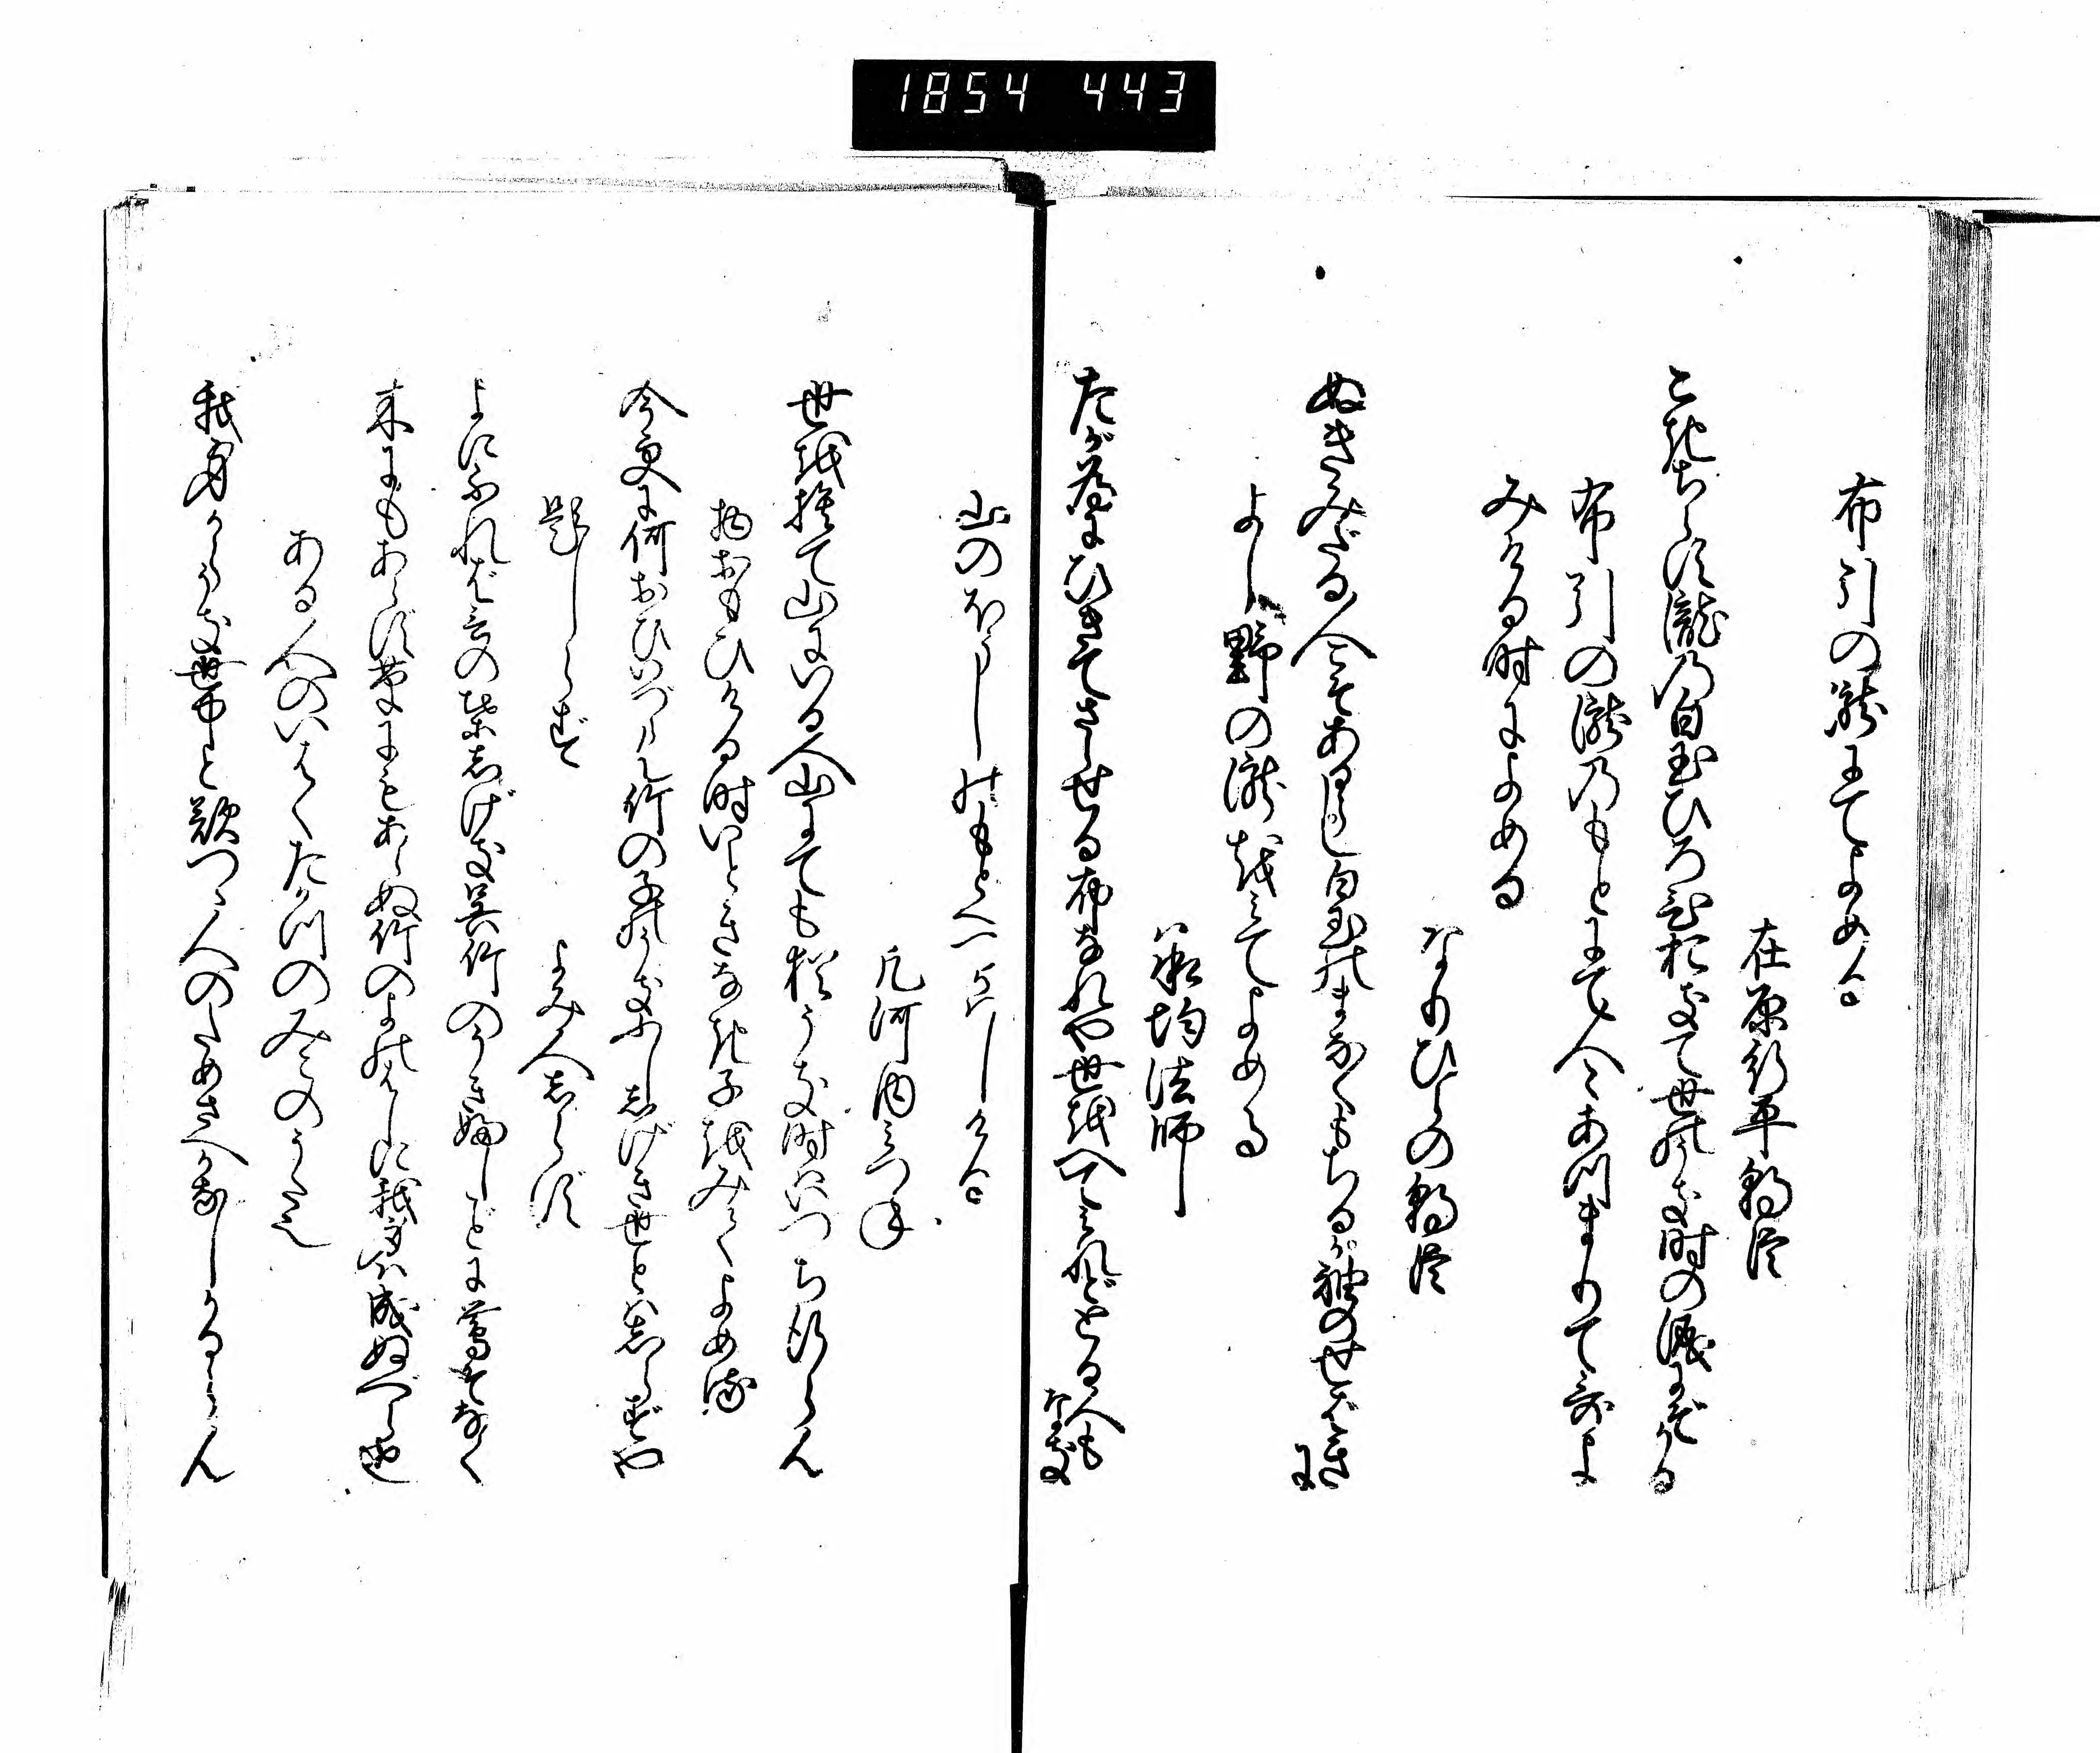 1854 443
布引の瀧にてよめる
在原行平朝臣
こきちらす瀧の白玉ひろひおきて世のうき時の涙にぞかる
布引の瀧のもとにて人々あつまりて哥よ
みける時によめる
なりひらの朝臣
ぬきみだる人こそあるらし白玉のまなくもちるか袖のせばき
に
よし野の瀧を見てよめる
承均法師
たが為にひきてさらせる布なれや世をへて見れどとる人も
なき
山のほうしのもとへつかはしける
凡河内みつね
世を捨て山にいる人山にても猶うき時はいづち行らん
物おもひける時いときなき子をみてよめる
今更に何おひいづらん竹の子のうきふししげき世とはしらずや
題しらず
よみ人しらず
よにふれば言の葉しげき呉竹のうきふしごとに鶯ぞなく
木にもあらず草にもあらぬ竹のよのはしに我身は成ぬべら也
ある人のいはくたかつのみこのうた也
我身からうき世中と歎つゝ人のためさへかなしかるらん